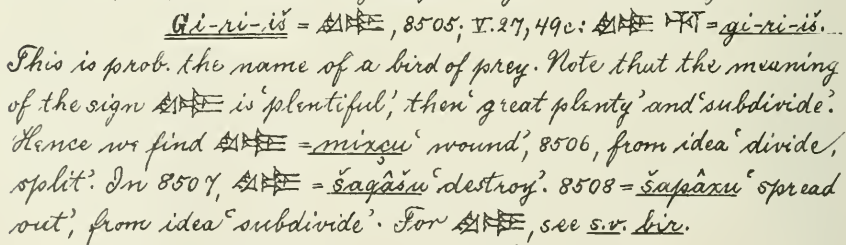 Gi-ri-iš = , 8505; V.27, 49c: = gi-ri-iš.
This is prob. the name of a bird of prey. Note that the meaning
of the sign is ‘plentiful’, then ‘great plenty’ and ‘subdivide’.
Hence we find = mixçu ‘wound’, 8506, from idea ‘divide,
split’. In 8507, = šagâšu ‘destroy’. 8508 = šapâxu ‘spread
out’, from idea ‘subdivide’. For , see s.v. bir.